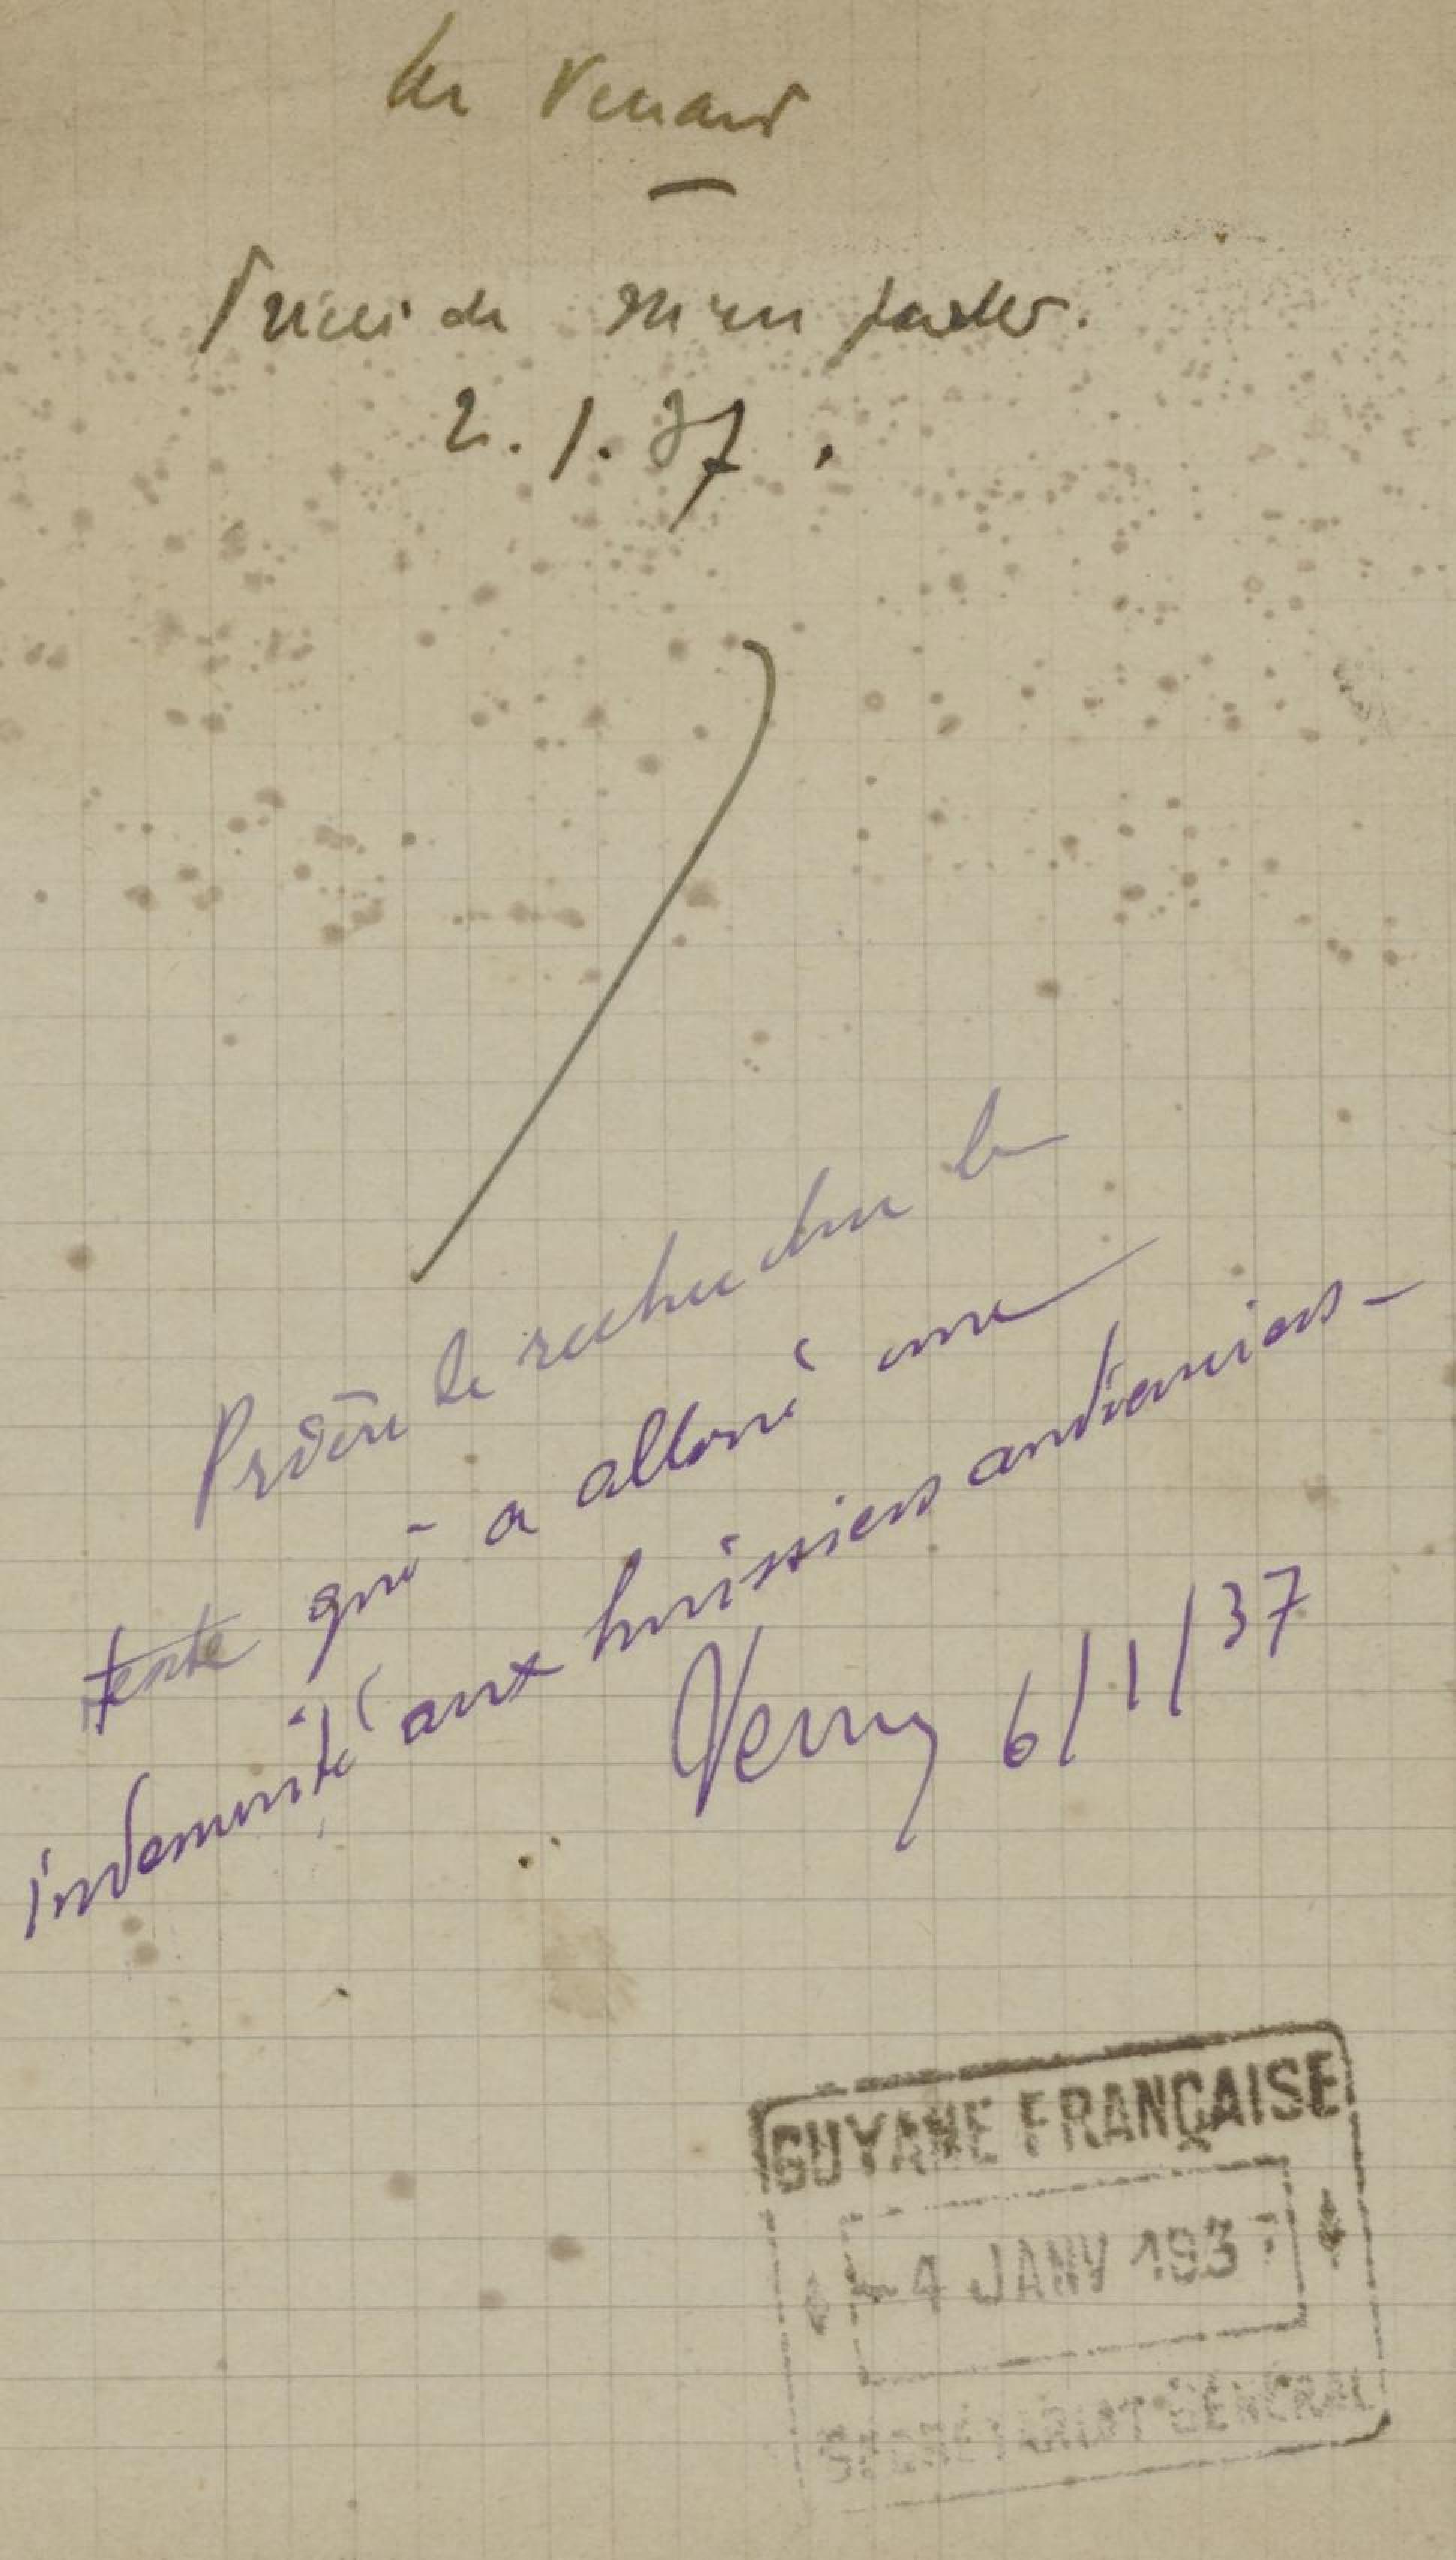 Mr Renard
Prière de m'en parler.
2.1.37.
Prière de rechercher le
texte qui a alloué une
indemnité aux huissiers audienciers -
Verny 6/1/37
GUYANE FRANÇAISE
- 4 JANV 1937
SECRÉTARIAT GÉNÉRAL